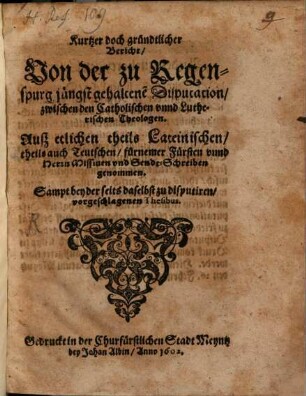 H. Ref. 109
9
Kurtzer doch gründtlicher
Bericht/
Von der zu Regen-
spurg jüngst gehaltenẽ Disputation/
zwischen den Catholischen vnnd Luthe-
rischen Theologen.
Auß etlichen theils Lateinischen/
theils auch Teutschen/ fürnemer Fürsten vnnd
Herrn Missiuen vnd Send-Schreiben
genommen.
Sampt beyderseits daselbst zu disputiren/
vorgeschlagenen Thesibus.
R
Gedruckt in der Churfürstlichen Stadt Meyntz
bey Johan Albin/ Anno 1602.